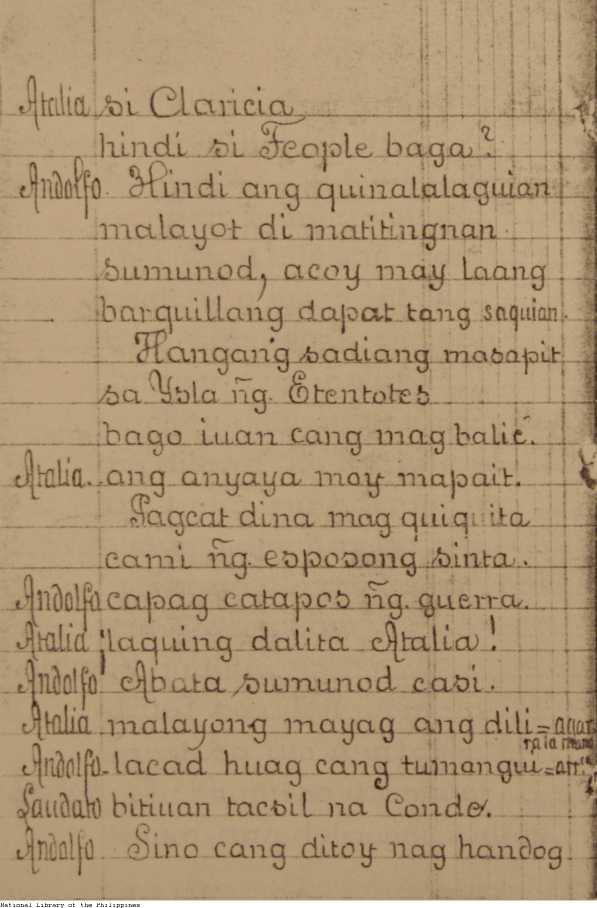 Atalia si Claricia
hindi si Feople baga?
Andolfo. Hindi ang quinalalaguian
malayot di matitingnan.
sumunod, acoy may laang
barquillang dapat tang saquian.
Hangang sadiang masapit
sa Ysla ñg. Etentotes
bago iuan cang mag balic.
Atalia. ang anyaya moy mapait.
Pagcat dina mag quiquita
cami ñg. esposong sinta.
Andolfo capag catapos ñg. guerra.
Atalia ¡laquing dalita Atalia!
Andolfo Abata sumunod casi.
Atalia malayong mayag ang dili=
Andolfo-lacad huag cang tumangui=
Laudato bitiuan tacsil na Conde.
Andolfo Sino cang ditoy nag handog.
National Library of the Philippines